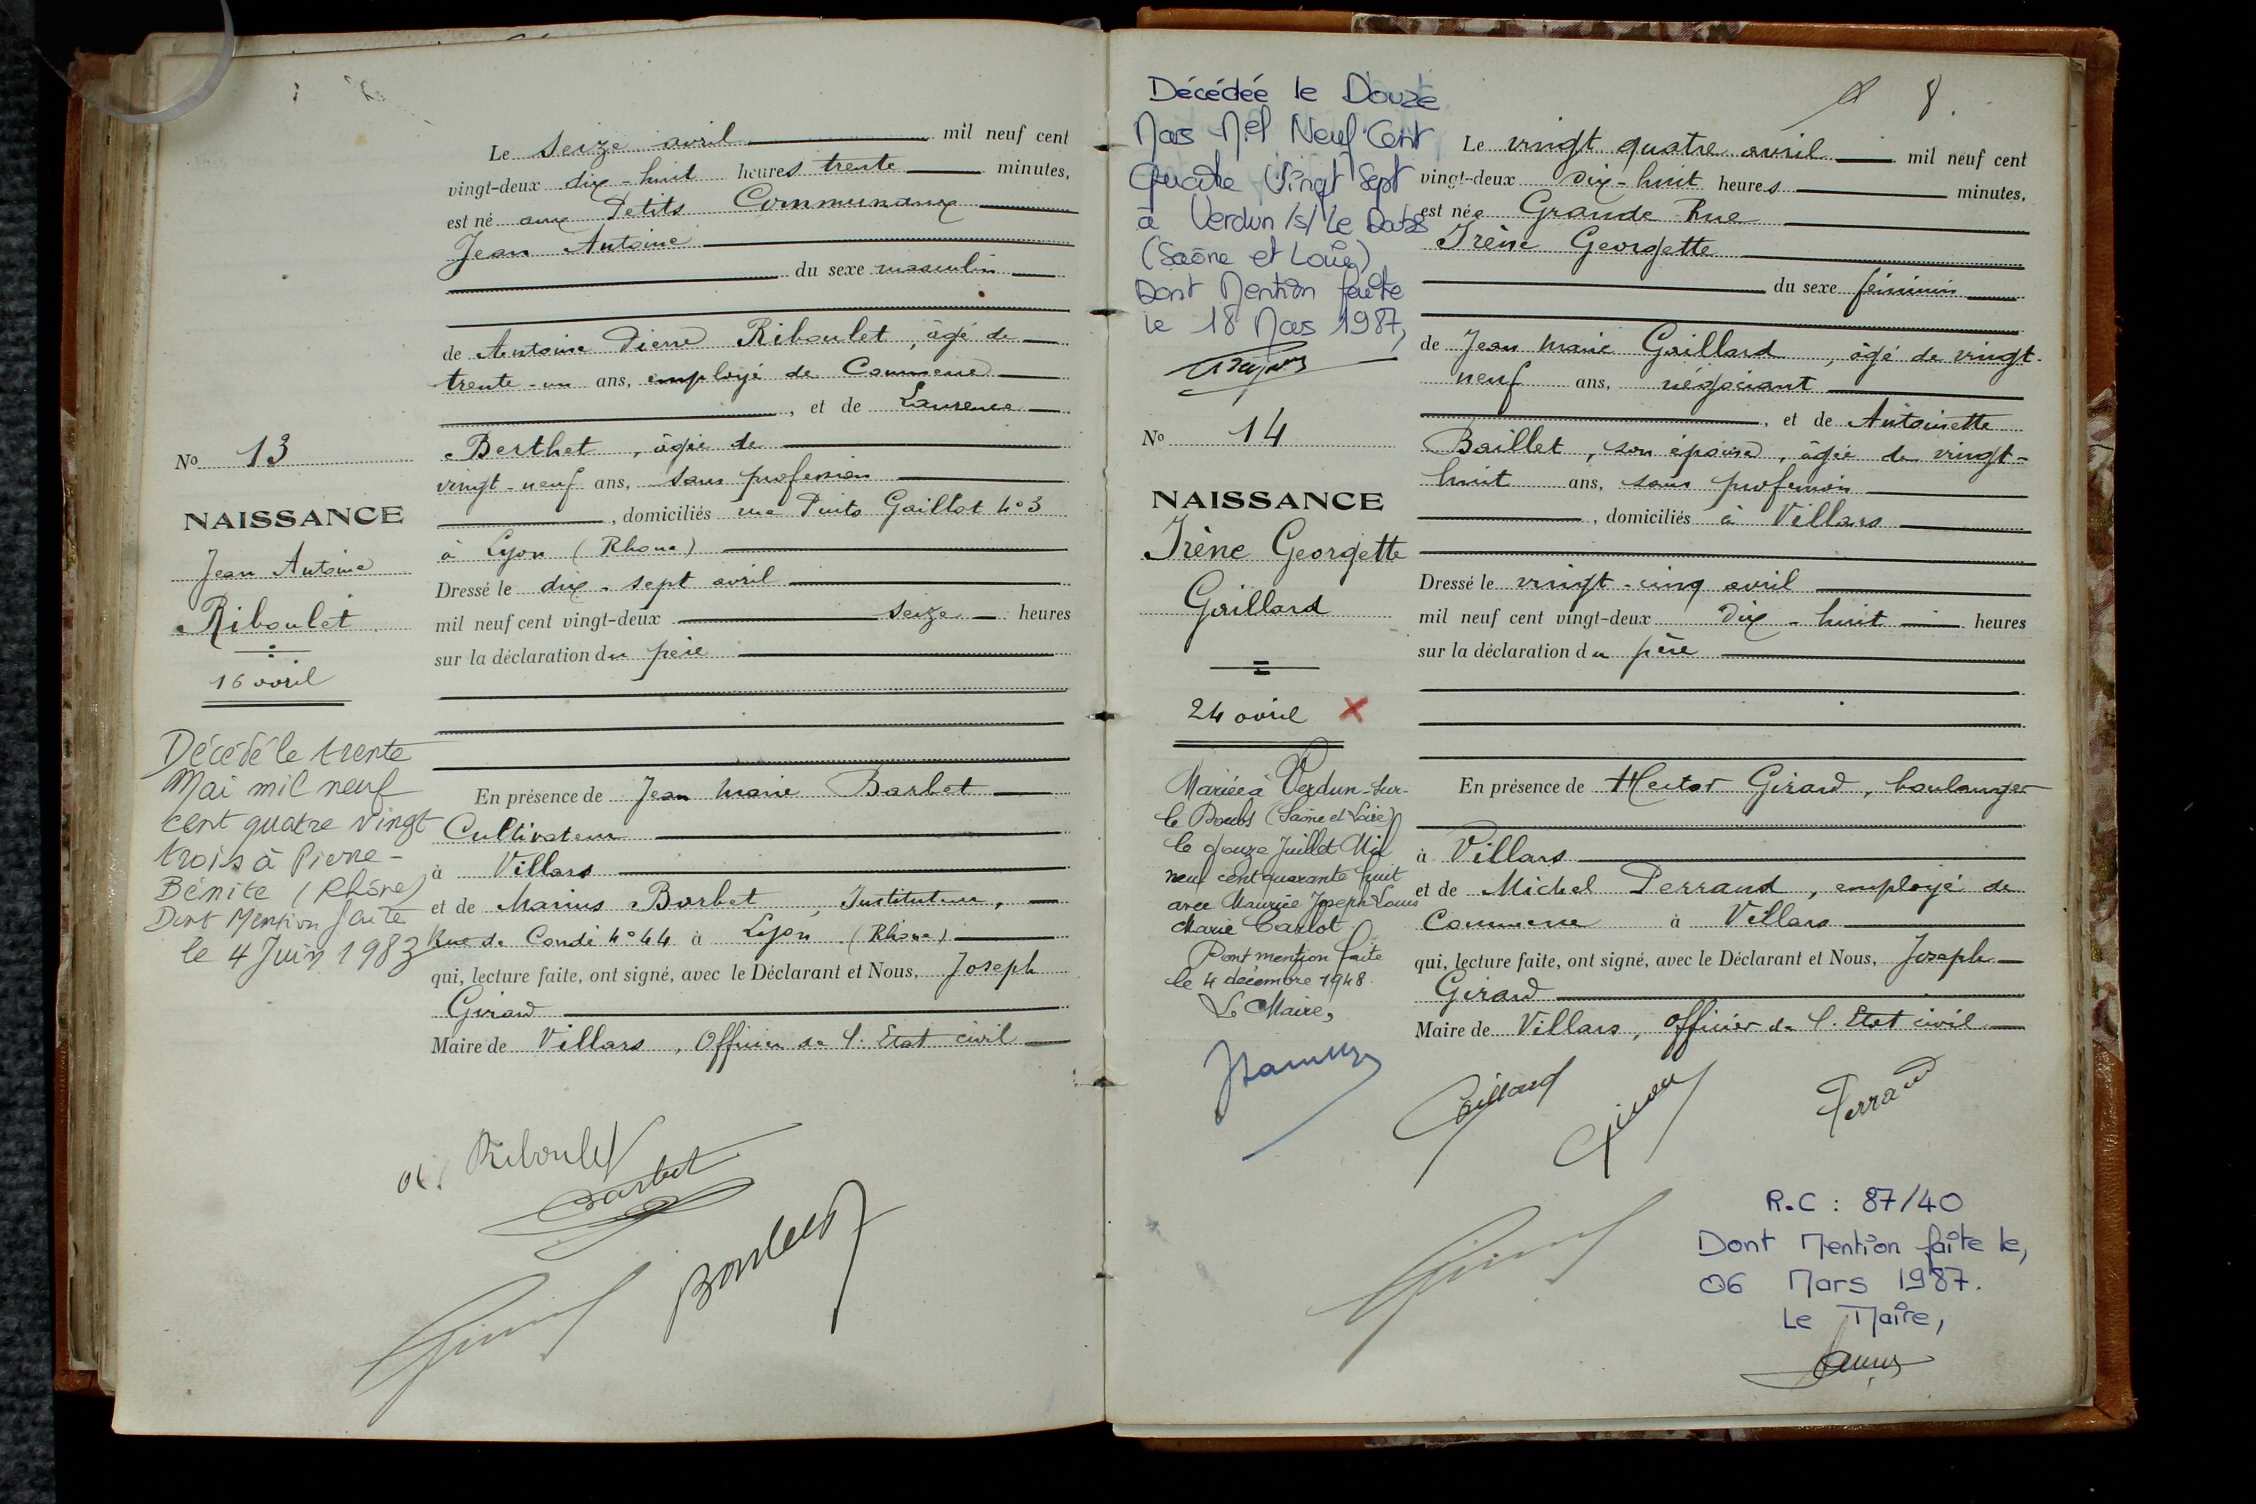 Le seize avril mil neuf cent
vingt-deux dix-huit heures trente minutes,
est né aux Petits Communaux
Jean Antoine
du sexe masculin
de Antoine Pierre Riboulet, âgé de
trente-un ans, employé de Commerce
, et de Laurence
Berthet, âgée de
vingt-neuf ans, sans profession
, domiciliés rue Puits Gaillot No 3
à Lyon (Rhône)
Dressé le dix-sept avril
mil neuf cent vingt-deux seize heures
sur la déclaration du père
En présence de Jean Marie Barbet
Cultivateur
à Villars
et de Marius Barbet, Instituteur,
Rue de Condé No 44 à Lyon (Rhône)
qui, lecture faite, ont signé, avec le Déclarant et Nous, Joseph
Girard
Maire de Villars, Officier de l'Etat civil
No 13
NAISSANCE
Jean Antoine
Riboulet
16 avril
Décédé le trente
Mai mil neuf
cent quatre vingt
trois à Pierre-
Bénite (Rhône)
Dont Mention faite
le 4 Juin 1983
Riboulet
Barbet
Barbet
Girard
8
Décédée le Douze
Mars Mil Neuf Cent
Quatre Vingt Sept
à Verdun /s/ Le Doubs
(Saône et Loire)
Dont Mention faite
le 18 Mars 1987,
No 14
NAISSANCE
Irène Georgette
Gaillard
24 avril X
Mariée à Verdun-sur-
le Doubs (Saône et Loire)
le douze Juillet Mil
neuf cent quarante huit
avec Maurice Joseph Louis
Marie Carlot
Dont mention faite
le 4 décembre 1948.
Le Maire,
Le vingt quatre avril mil neuf cent
vingt-deux dix-huit heures minutes,
est née Grande Rue
Irène Georgette
du sexe féminin
de Jean Marie Gaillard, âgé de vingt-
neuf ans, négociant
, et de Antoinette
Baillet, son épouse, âgée de vingt-
huit ans, sans profession
, domiciliés à Villars
Dressé le vingt-cinq avril
mil neuf cent vingt-deux dix-huit heures
sur la déclaration du père
En présence de Hector Girard, boulanger
à Villars
et de Michel Perraud, employé de
Commerce à Villars
qui, lecture faite, ont signé, avec le Déclarant et Nous, Joseph
Girard
Maire de Villars, Officier de l'Etat civil
Gaillard
Girard
Perraud
Girard
R.C : 87/40
Dont Mention faite le,
06 Mars 1987.
Le Maire,